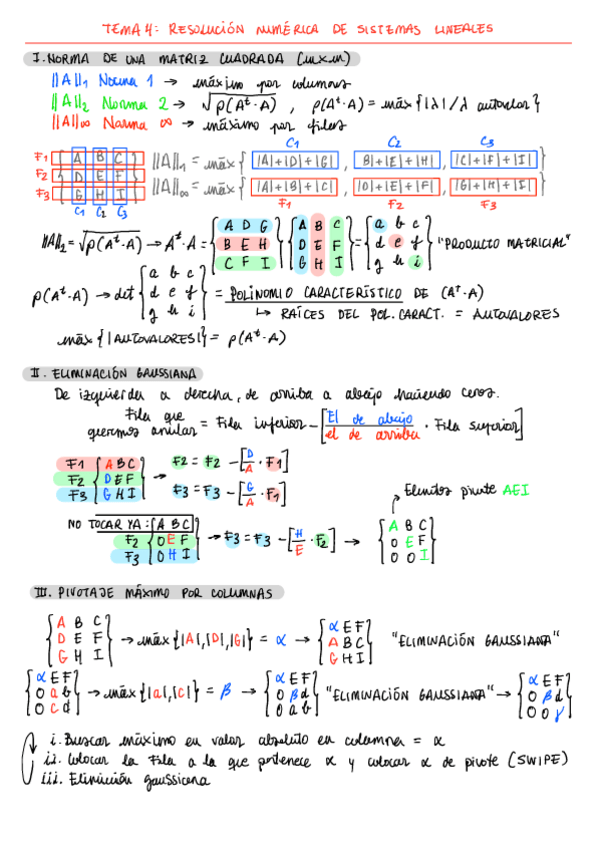 TEMA 4: RESOLUCIÓN NUMÉRICA DE SISTEMAS LINEALES
I. NORMA DE UNA MATRIZ CUADRADA (m x m)
||A||₁ Norma 1 → máximo por columnas
||A||₂ Norma 2 → √ρ(Aᵗ·A) , ρ(Aᵗ·A) = máx{|λ|/λ autovalor}
||A||∞ Norma ∞ → máximo por filas
C1 C2 C3
F1 { A B C } ||A||₁ = máx { |A|+|D|+|G| , |B|+|E|+|H| , |C|+|F|+|I| }
F2 { D E F }
F3 { G H I } ||A||∞ = máx { |A|+|B|+|C| , |D|+|E|+|F| , |G|+|H|+|I| }
C1 C2 C3 F1 F2 F3
||A||₂ = √ρ(Aᵗ·A) → Aᵗ·A = { A D G { A B C = { a b c "PRODUCTO MATRICIAL"
B E H D E F d e f
C F I } G H I } g h i }
ρ(Aᵗ·A) → det { a b c
d e f = POLINOMIO CARACTERÍSTICO DE (Aᵗ·A)
g h i } ↳ RAÍCES DEL POL. CARACT. = AUTOVALORES
máx{|AUTOVALORES|} = ρ(Aᵗ·A)
II. ELIMINACIÓN GAUSSIANA
De izquierda a derecha, de arriba a abajo haciendo ceros.
Fila que queremos anular = Fila inferior - [El de abajo / el de arriba · Fila superior]
F1 { A B C F2 = F2 - [D/A · F1]
F2 { D E F →
F3 { G H I F3 = F3 - [G/A · F1]
Elmntos pivote AEI
NO TOCAR YA: { A B C } { A B C
F2 { 0 E F → F3 = F3 - [H/E · F2] → 0 E F
F3 { 0 H I 0 0 I }
III. PIVOTAJE MÁXIMO POR COLUMNAS
{ A B C { α E F
D E F → máx{|A|,|D|,|G|} = α → A B C "ELIMINACIÓN GAUSSIANA"
G H I } G H I }
{ α E F { α E F { α E F
0 a b → máx{|a|,|c|} = β → 0 β d "ELIMINACIÓN GAUSSIANA" → 0 β d
0 c d } 0 a b } 0 0 γ }
i. Buscar máximo en valor absoluto en columna = α
ii. Colocar la fila a la que pertenece α y colocar α de pivote (SWIPE)
iii. Eliminción gaussiana